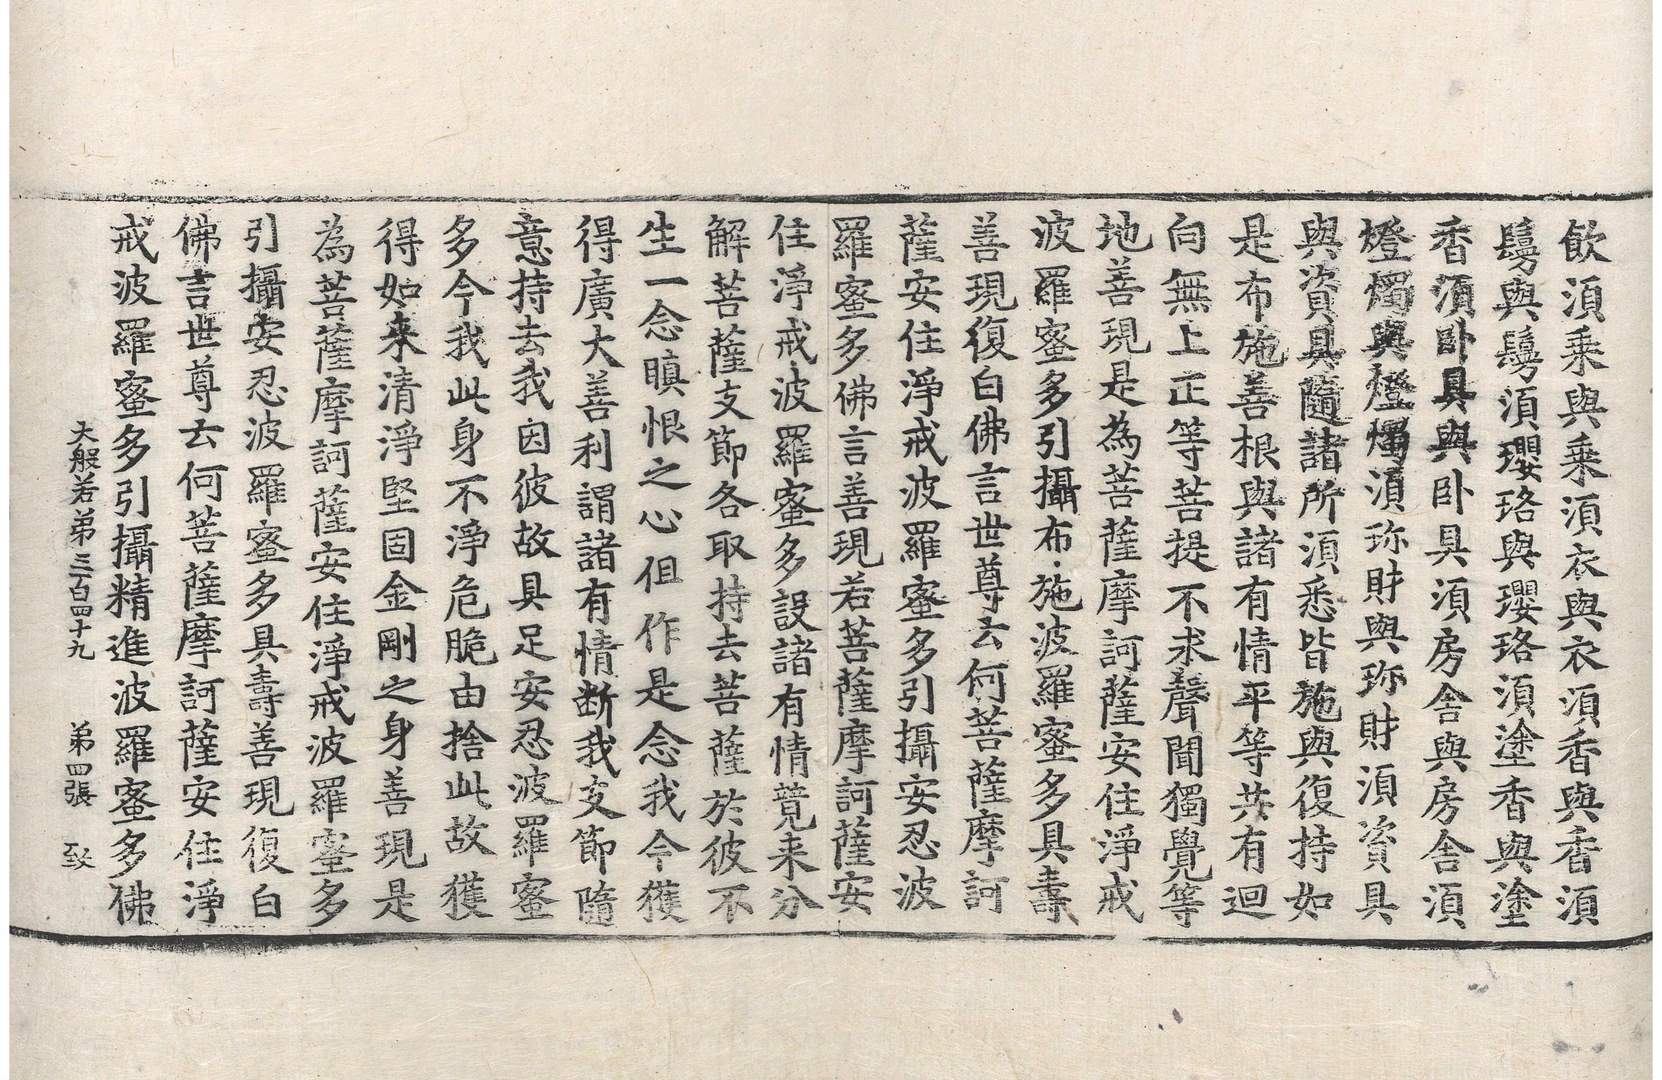 飲湏乘與乘湏衣與衣湏香與香湏
鬘與鬘湏瓔珞與瓔珞湏塗香與塗
香湏卧具與卧具湏房舍與房舍湏
燈燭與燈燭湏珎財與珎財湏資具
與資具隨諸所湏悉皆施與復持如
是布施善根與諸有情平等共有迴
向無上正等菩提不求聲聞獨覺等
地善現是為菩薩摩訶薩安住淨戒
波羅蜜多引攝布施波羅蜜多具壽
善現復白佛言世尊云何菩薩摩訶
薩安住淨戒波羅蜜多引攝安忍波
羅蜜多佛言善現若菩薩摩訶薩安
住淨戒波羅蜜多設諸有情競来分
解菩薩支節各取持去菩薩於彼不
生一念瞋恨之心但作是念我今獲
得廣大善利謂諸有情断我支節隨
意持去我因彼故具足安忍波羅蜜
多今我此身不淨危脆由捨此故獲
得如来清淨堅固金剛之身善現是
為菩薩摩訶薩安住淨戒波羅蜜多
引攝安忍波羅蜜多具壽善現復白
佛言世尊云何菩薩摩訶薩安住淨
戒波羅蜜多引攝精進波羅蜜多佛
大般若第三百四十九 第四張 致